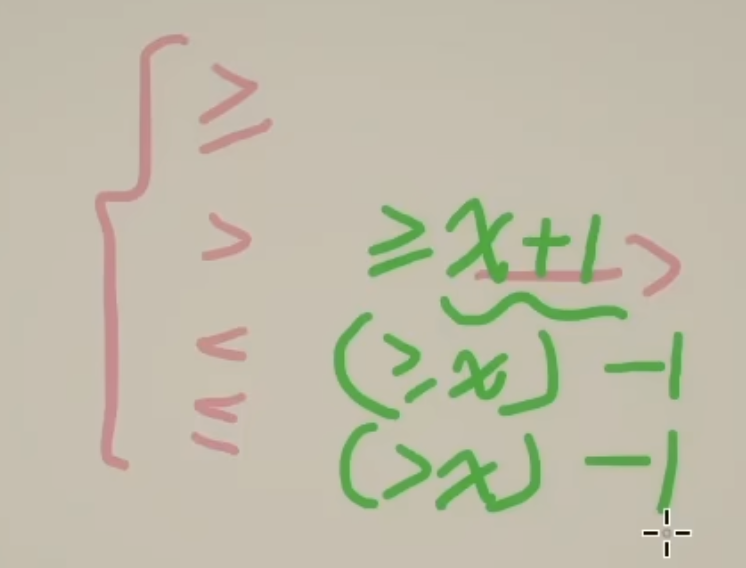 ≥
>
<
≤
≥x+1 >
(≥x) -1
(>x) -1